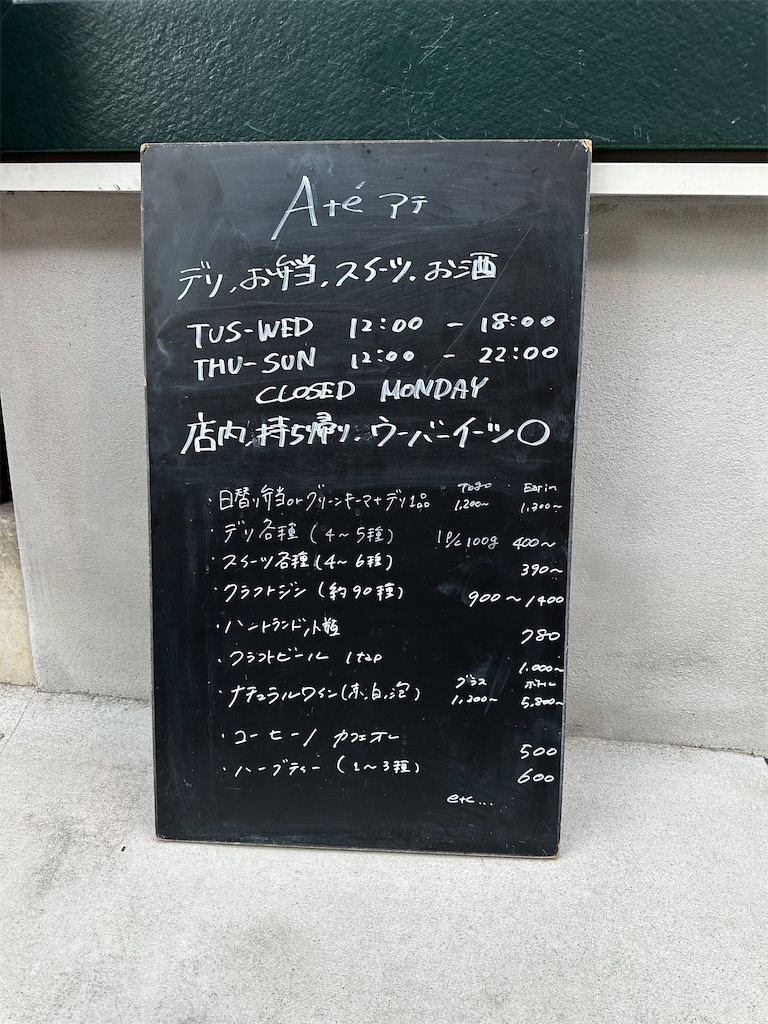 Até アテ
デリ、お弁当、スイーツ、お酒
TUS-WED 12:00 - 18:00
THU-SUN 12:00 - 22:00
CLOSED MONDAY
店内、持ち帰り、ウーバーイーツ〇
Togo Eatin
・日替り弁当orグリーンキーマ+デリ1品 1,200~ 1,300~
・デリ各種(4~5種) 1P/100g 400~
・スイーツ各種(4~6種) 390~
・クラフトジン(約90種) 900~1400
・ハートランド小瓶 780
・クラフトビール 1tap 1,000~
グラス ボトル
・ナチュラルワイン(赤、白、泡) 1,200~ 5,800~
・コーヒー/カフェオレ 500
・ハーブティー(2~3種) 600
etc...